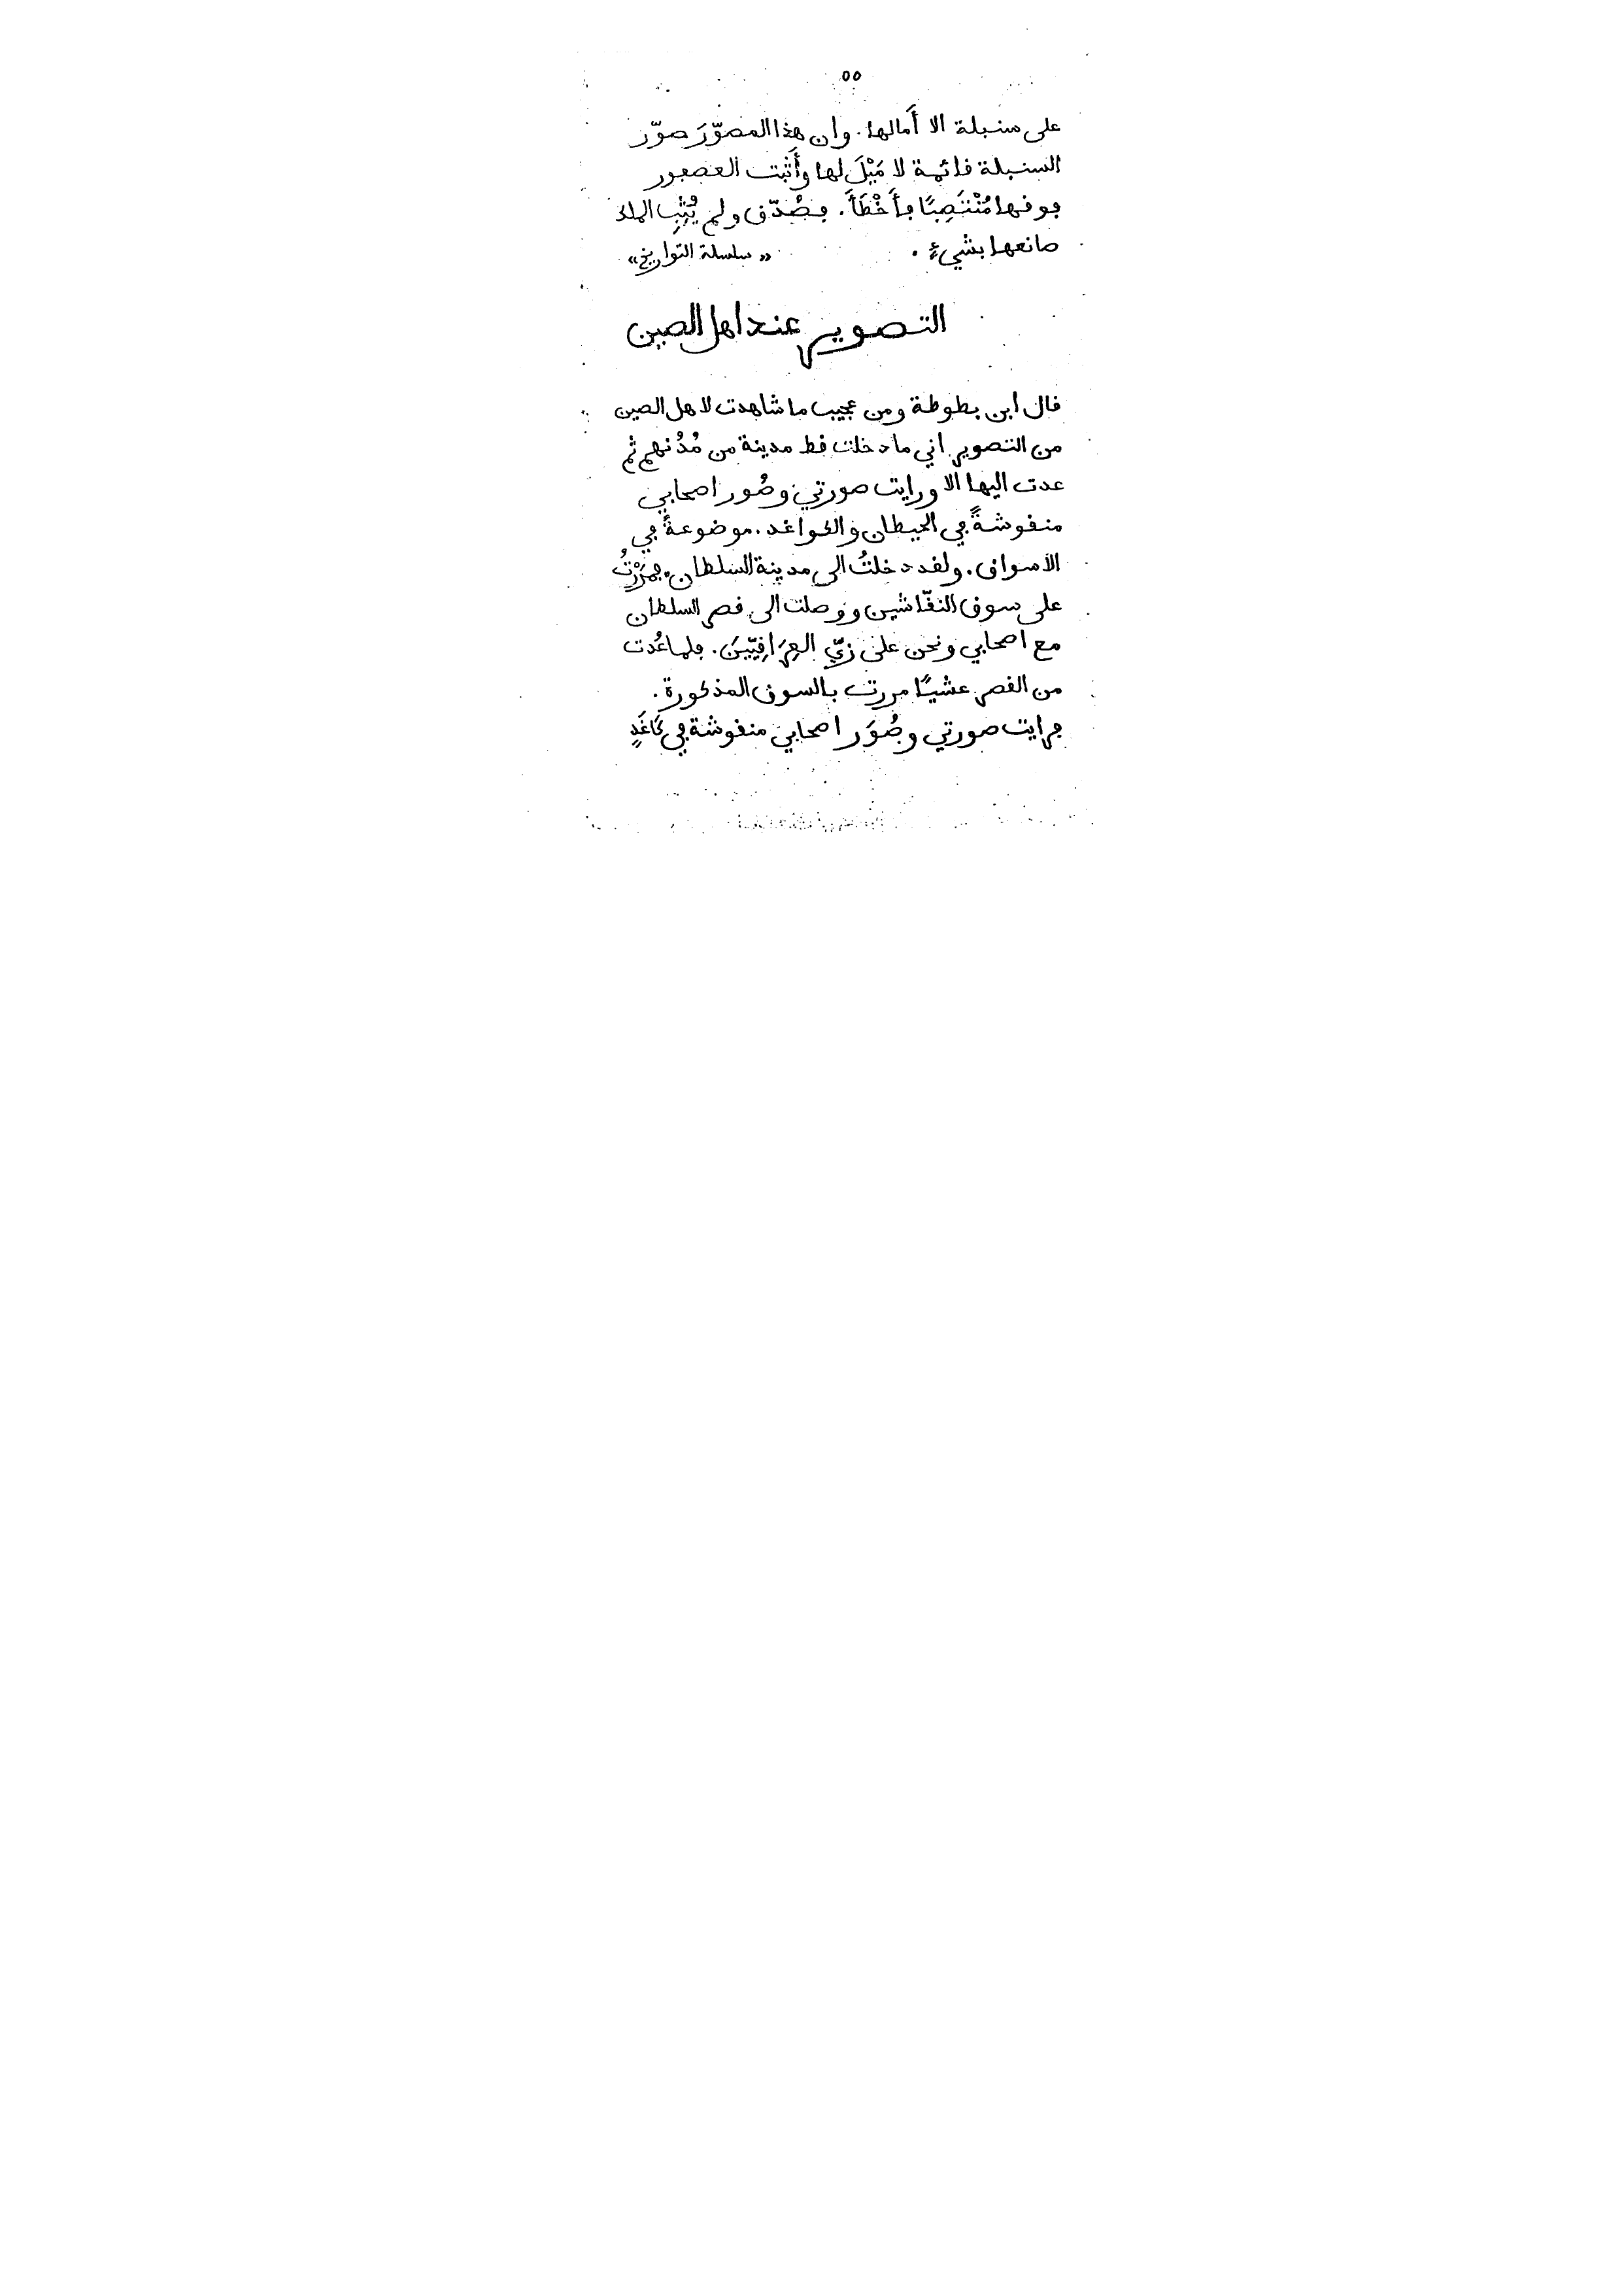 ٥٥
على سنبلة الا أَمالها. وان هذا المصوّرَ صوّر
السنبلة قائمة لا مَيْلَ لها وأَثبت العصفور
فوقها مُنْتَصِبًا فأَخْطَأَ. فصُدّق ولم يُثِبِ الملك
صانعها بشيءٍ.
«سلسلة التواريخ»
التصوير عند اهل الصين
قال ابن بطوطة ومن عجيب ما شاهدت لاهل الصين
من التصوير اني ما دخلت قط مدينة من مُدُنهم ثم
عدت اليها الا ورايت صورتي وصُور اصحابي
منقوشةً في الحيطان والكواغد. موضوعةً في
الاسواق. ولقد دخلتُ الى مدينة السلطان. فمَرَرْتُ
على سوق النقّاشين ووصلت الى قصر السلطان
مع اصحابي ونحن على زيّ العِرَاقِيّينَ. فلما عُدت
من القصر عشيًا مررت بالسوق المذكورة.
فرايت صورتي وصُوَر اصحابي منقوشة في كَاغَدٍ